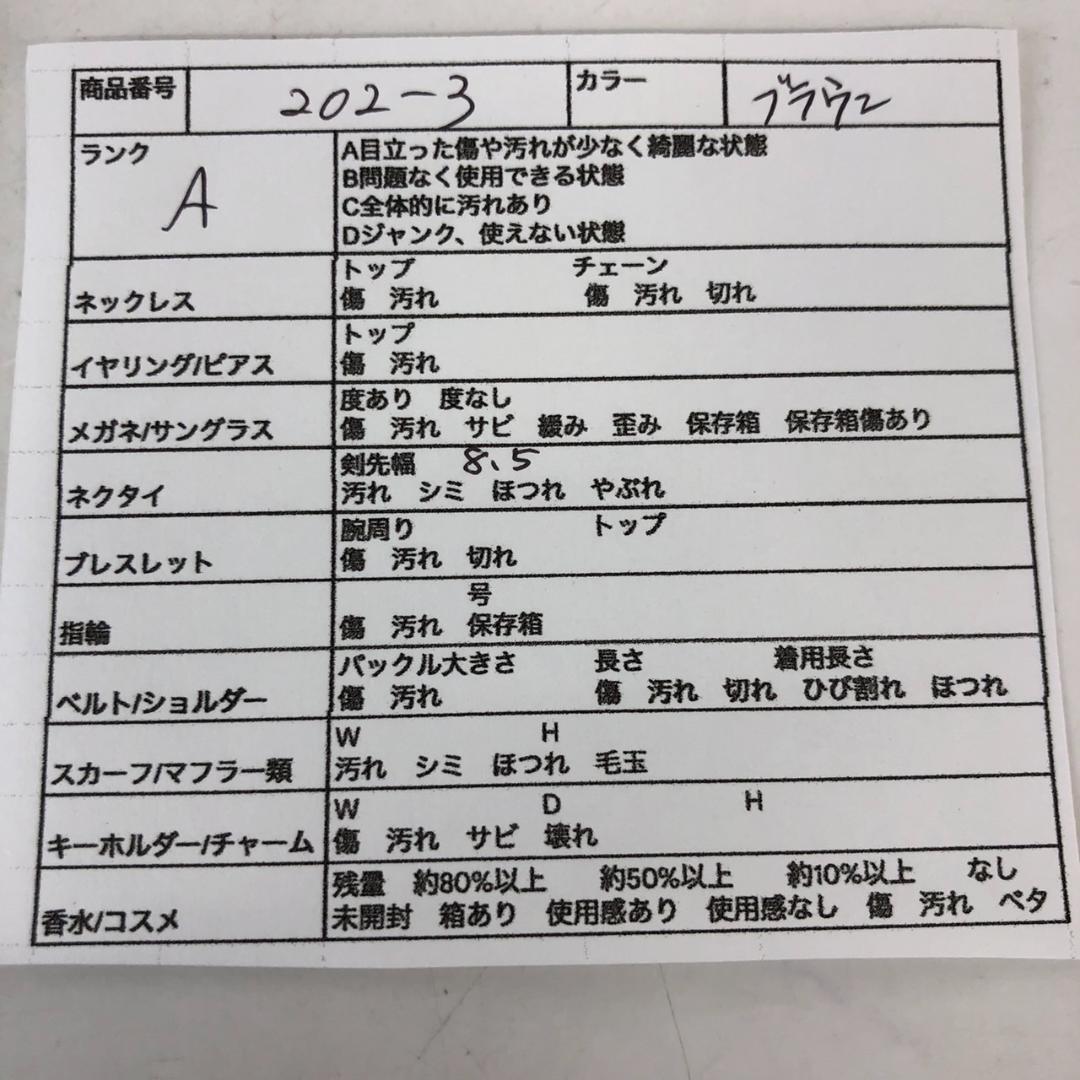 商品番号 202-3 カラー ブラウン
ランク A
A目立った傷や汚れが少なく綺麗な状態
B問題なく使用できる状態
C全体的に汚れあり
Dジャンク、使えない状態
ネックレス
トップ チェーン
傷 汚れ 傷 汚れ 切れ
イヤリング/ピアス
トップ
傷 汚れ
メガネ/サングラス
度あり 度なし
傷 汚れ サビ 緩み 歪み 保存箱 保存箱傷あり
ネクタイ
剣先幅 8、5
汚れ シミ ほつれ やぶれ
ブレスレット
腕周り トップ
傷 汚れ 切れ
指輪
号
傷 汚れ 保存箱
ベルト/ショルダー
バックル大きさ 長さ 着用長さ
傷 汚れ 傷 汚れ 切れ ひび割れ ほつれ
スカーフ/マフラー類
W H
汚れ シミ ほつれ 毛玉
キーホルダー/チャーム
W D H
傷 汚れ サビ 壊れ
香水/コスメ
残量 約80%以上 約50%以上 約10%以上 なし
未開封 箱あり 使用感あり 使用感なし 傷 汚れ ベタ